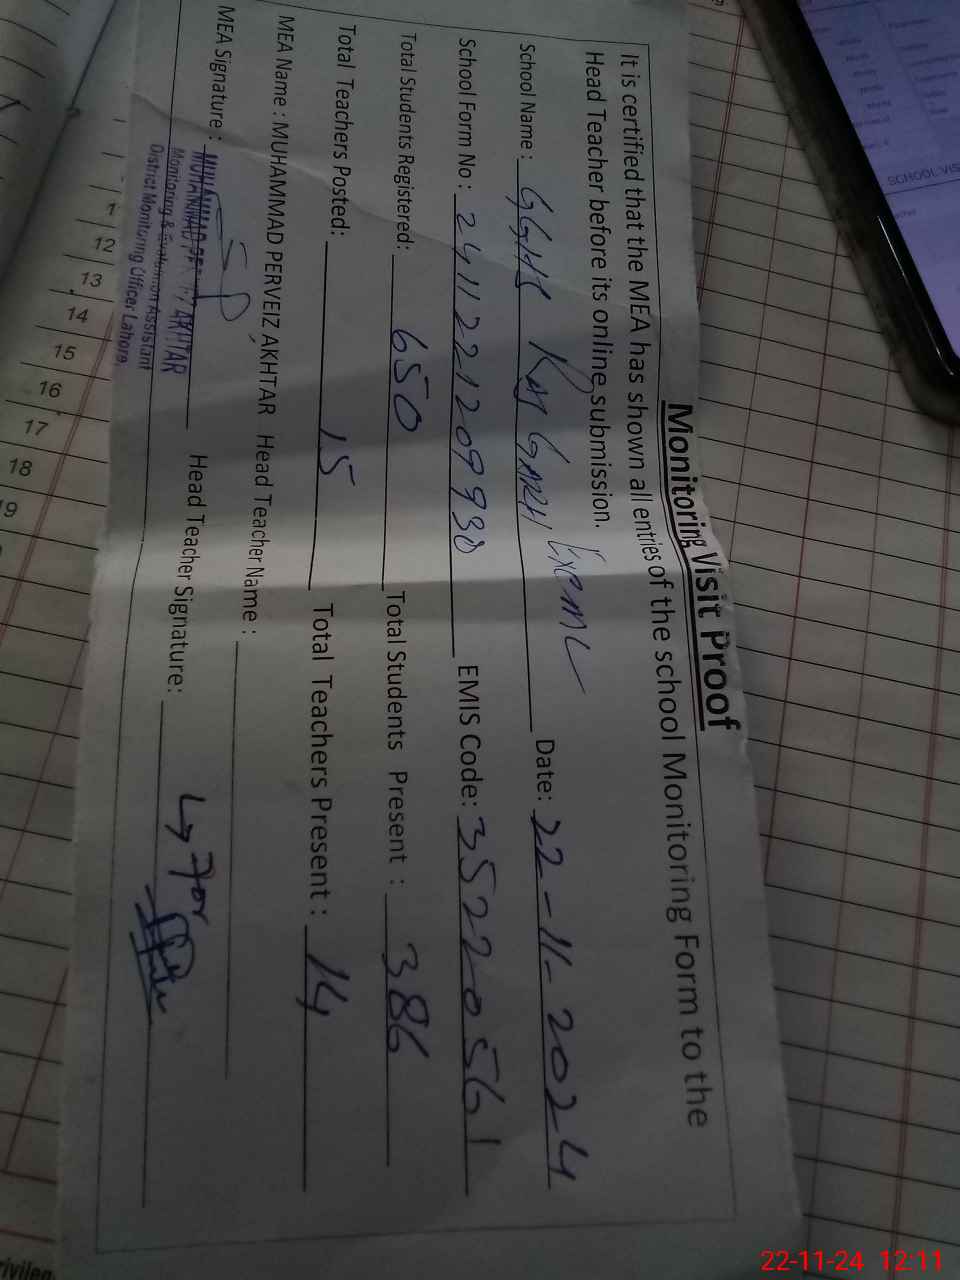 Monitoring Visit Proof
It is certified that the MEA has shown all entries of the school Monitoring Form to the
Head Teacher before its online submission.
School Name: GGHS Date: 22-11-2024
School Form No: EMIS Code: 35220561
Total Students Registered: 650 Total Students Present: 386
Total Teachers Posted: 15 Total Teachers Present: 14
MEA Name: MUHAMMAD PERVEIZ AKHTAR Head Teacher Name:
MEA Signature: Head Teacher Signature: For
MUHAMMAD AKHTAR
Monitoring & Evaluation Assistant
District Monitoring Officer Lahore
12
13
14
15
16
17
18
19
SCHOOL VIS
22-11-24 12:11